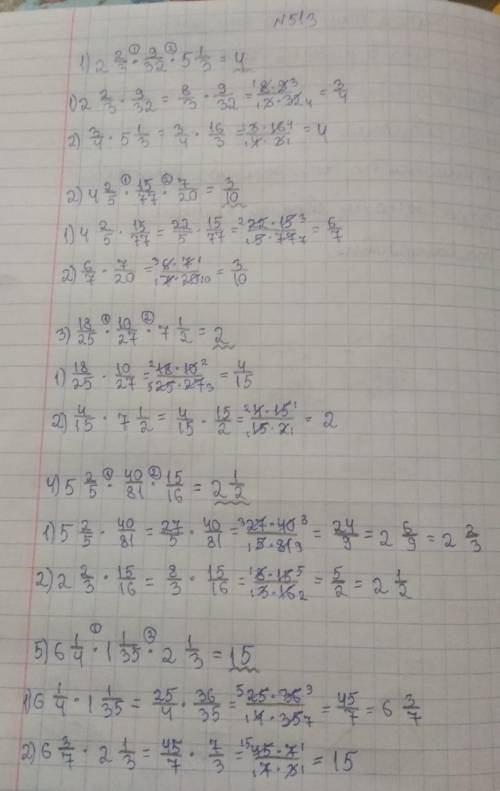 №513
1) 2 2/3 ① · 9/32 ② · 5 1/3 = 4
1) 2 2/3 · 9/32 = 8/3 · 9/32 = 8·9/3·32 = 3/4
2) 3/4 · 5 1/3 = 3/4 · 16/3 = 3·16/4·3 = 4
2) 4 2/5 ① · 15/77 ② · 7/20 = 3/10
1) 4 2/5 · 15/77 = 22/5 · 15/77 = 22·15/5·77 = 6/7
2) 6/7 · 7/20 = 6·7/7·20 = 3/10
3) 18/25 ① · 10/27 ② · 7 1/2 = 2
1) 18/25 · 10/27 = 18·10/25·27 = 4/15
2) 4/15 · 7 1/2 = 4/15 · 15/2 = 4·15/15·2 = 2
4) 5 2/5 ① · 40/81 ② · 15/16 = 2 1/2
1) 5 2/5 · 40/81 = 27/5 · 40/81 = 27·40/5·81 = 24/9 = 2 6/9 = 2 2/3
2) 2 2/3 · 15/16 = 8/3 · 15/16 = 8·15/3·16 = 5/2 = 2 1/2
5) 6 1/4 ① · 1 1/35 ② · 2 1/3 = 15
1) 6 1/4 · 1 1/35 = 25/4 · 36/35 = 25·36/4·35 = 45/7 = 6 3/7
2) 6 3/7 · 2 1/3 = 45/7 · 7/3 = 45·7/7·3 = 15